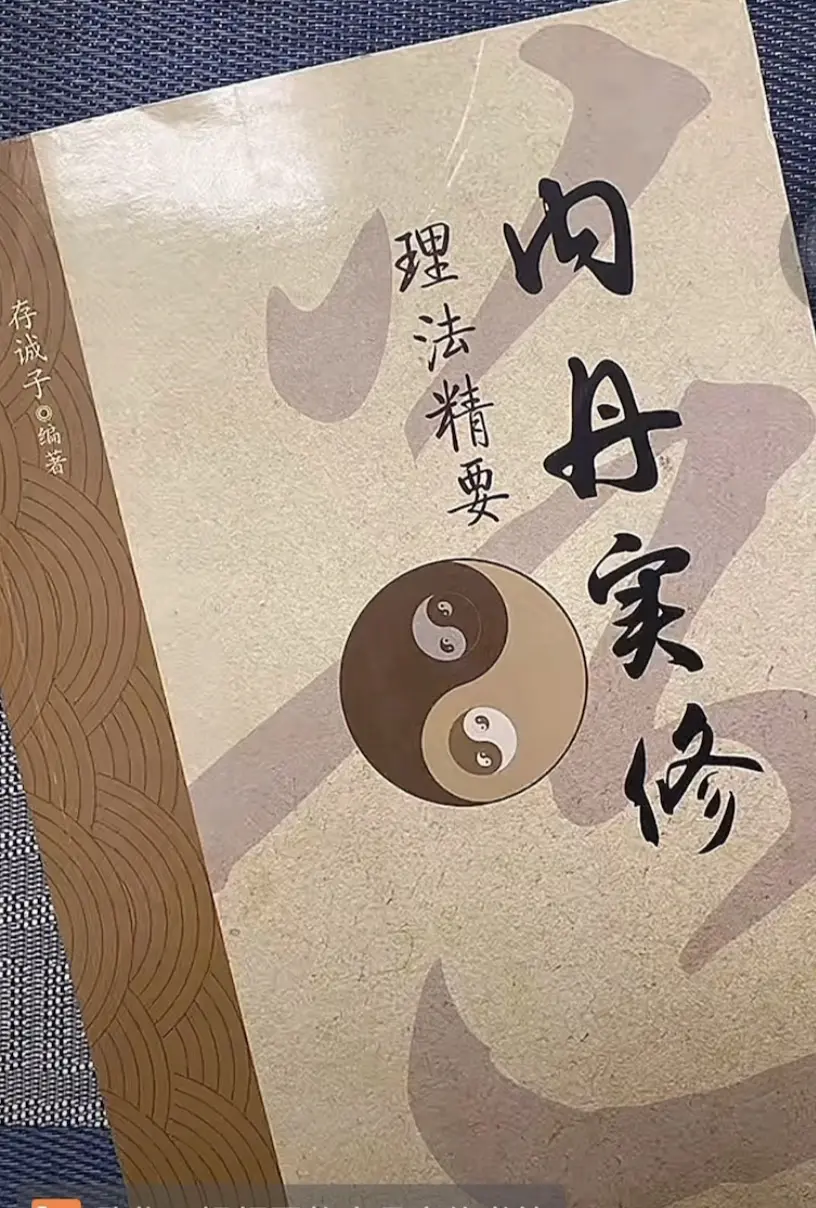 内丹实修
理法精要
存诚子◎编著